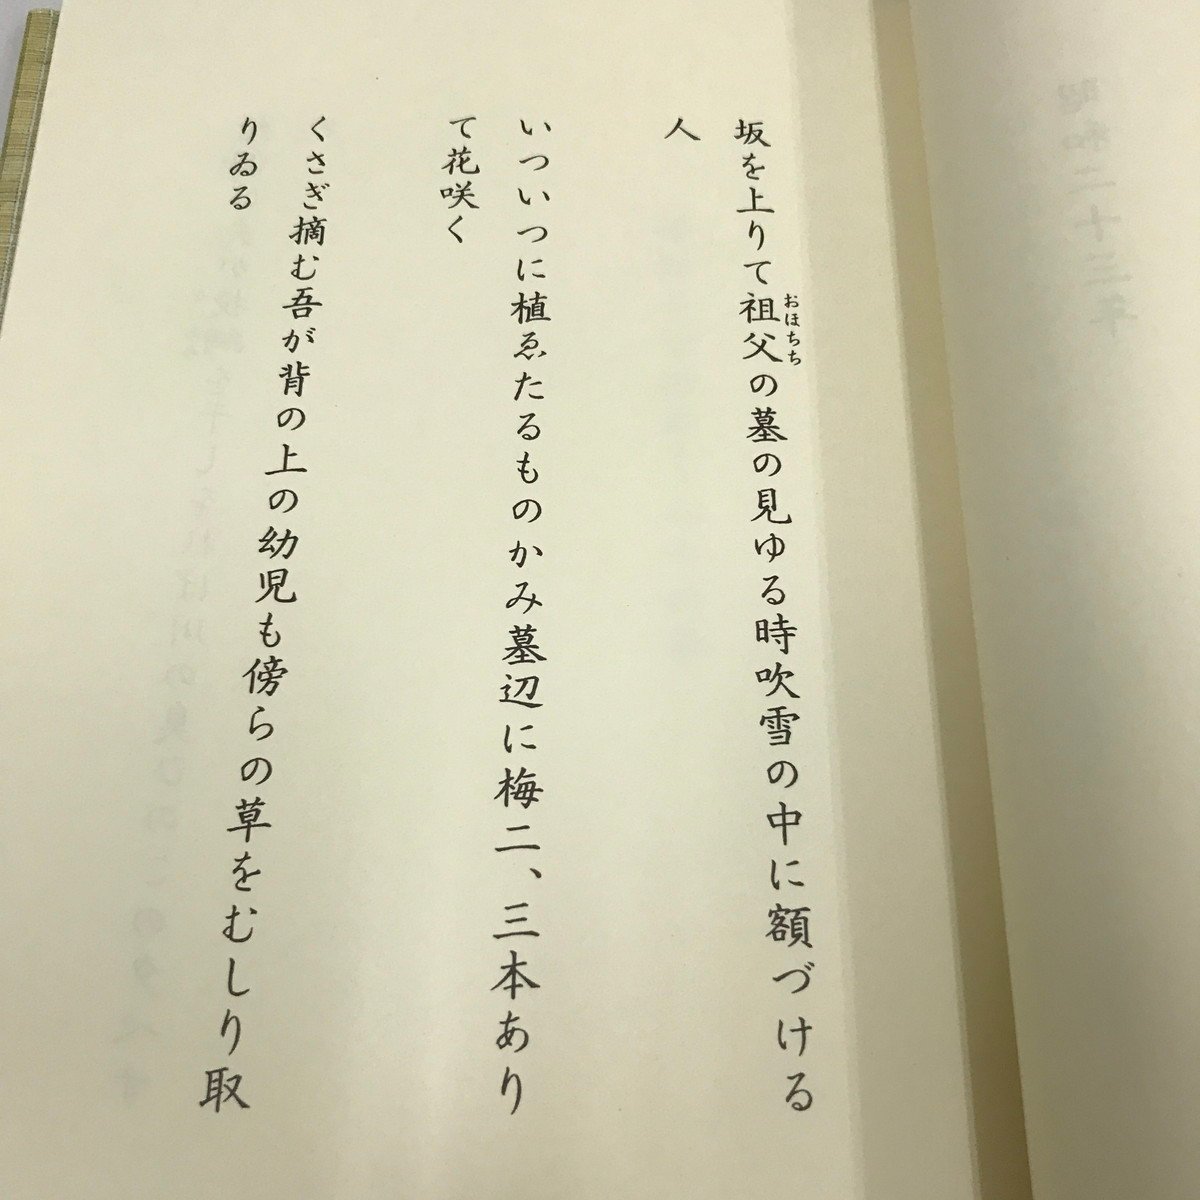 坂を上りて祖父の墓の見ゆる時吹雪の中に額づける
おほちち
人
いついつに植ゑたるものかみ墓辺に梅二、三本あり
て花咲く
くさぎ摘む吾が背の上の幼児も傍らの草をむしり取
りゐる
昭和二十三年